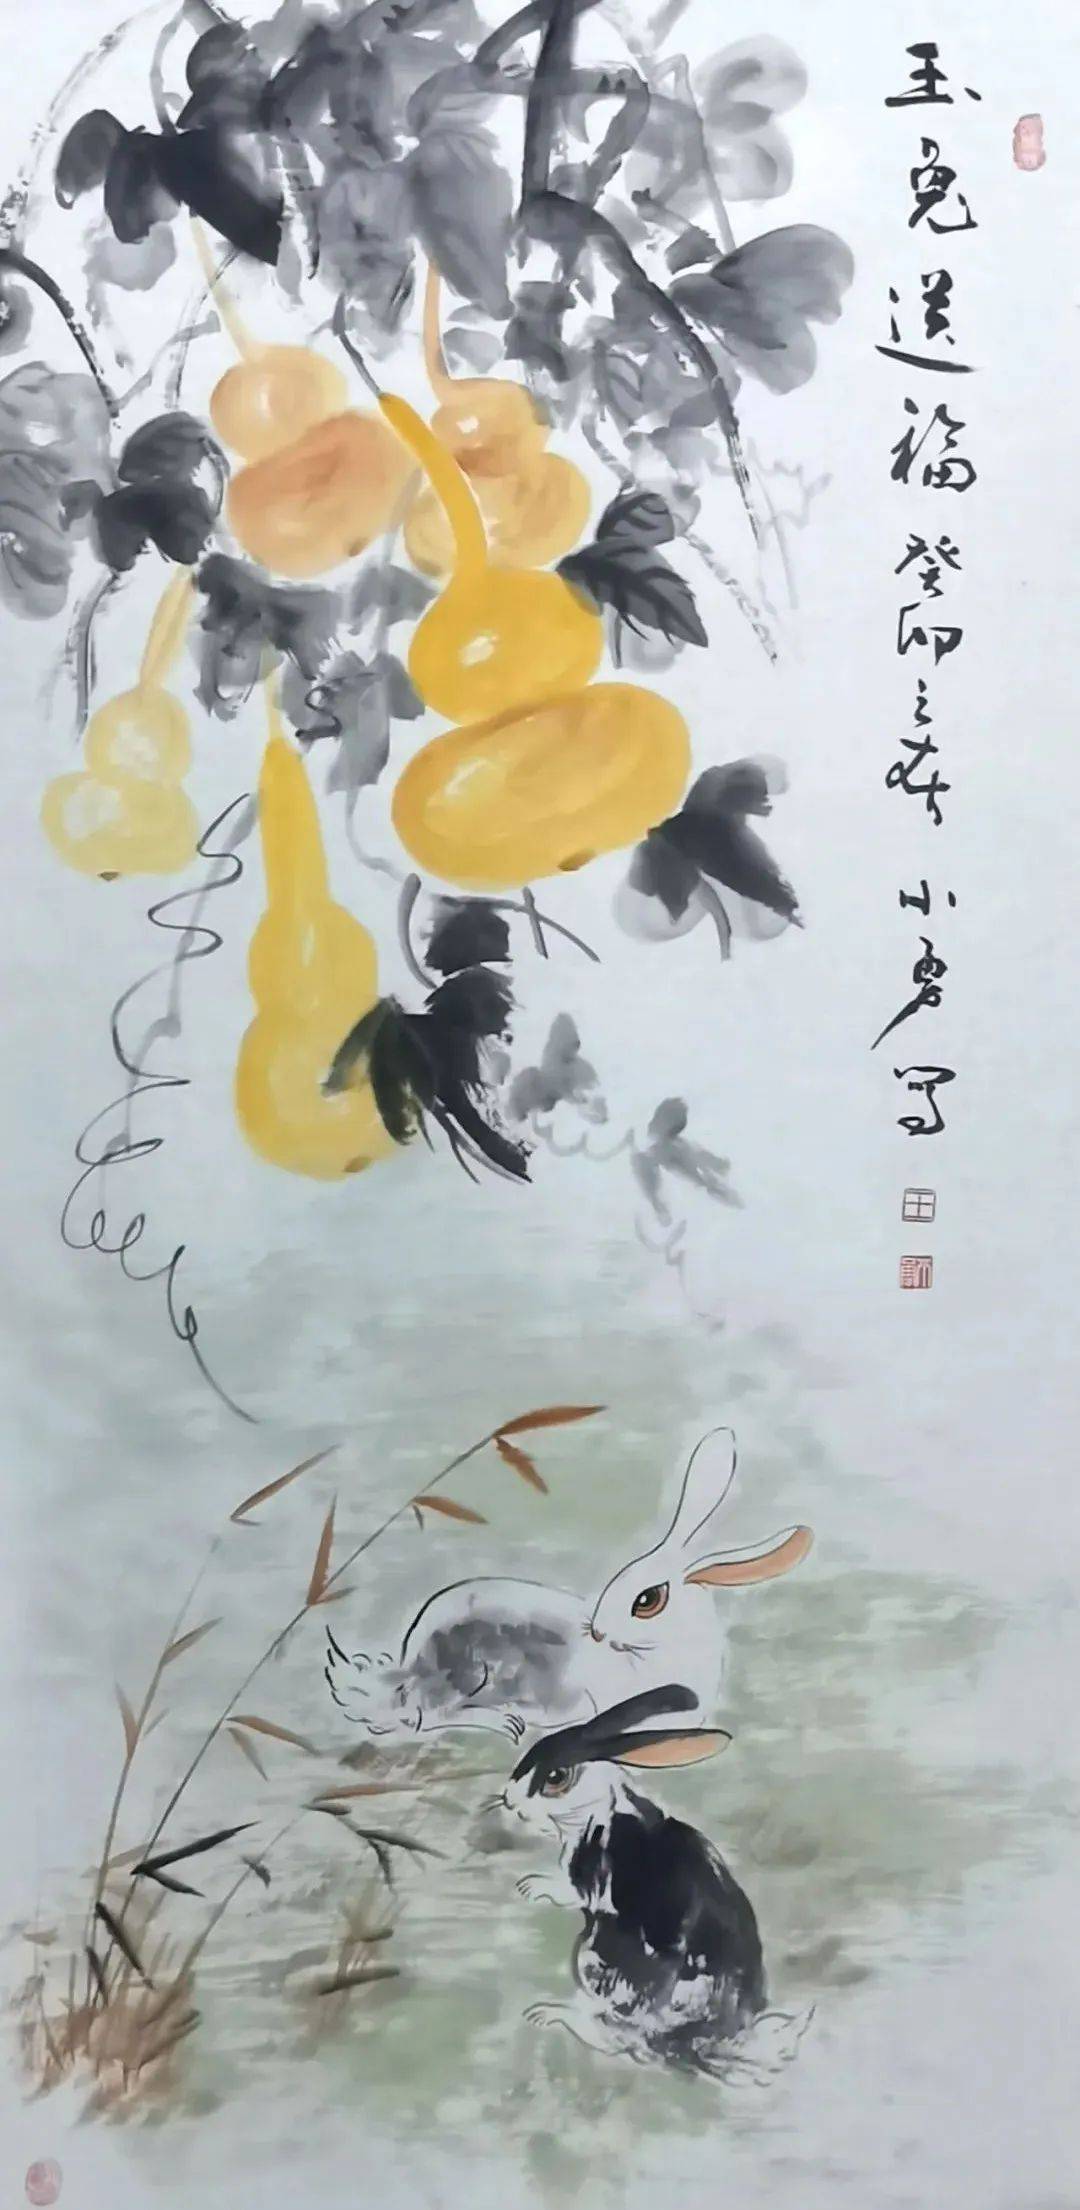 玉兔送福 癸卯之春 小勇写
王